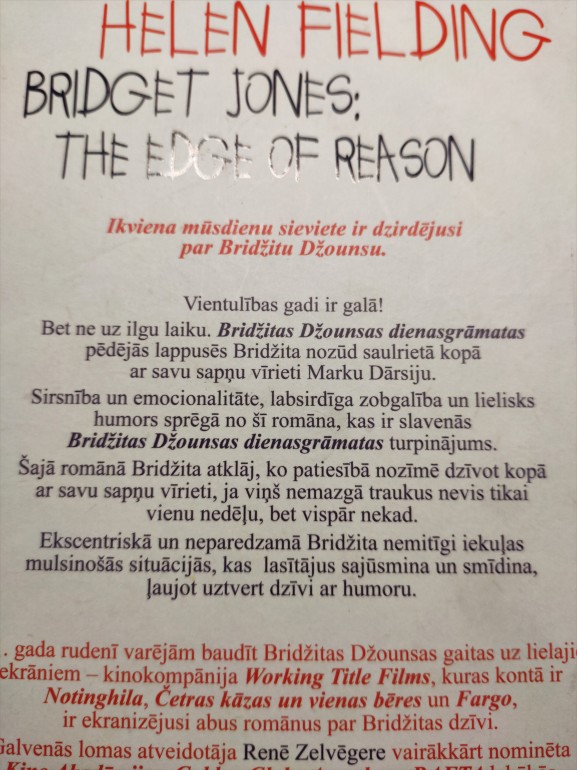 HELEN FIELDING
BRIDGET JONES:
THE EDGE OF REASON
Ikviena mūsdienu sieviete ir dzirdējusi
par Bridžitu Džounsu.
Vientulības gadi ir galā!
Bet ne uz ilgu laiku. Bridžitas Džounsas dienasgrāmatas
pēdējās lappusēs Bridžita nozūd saulrietā kopā
ar savu sapņu vīrieti Marku Dārsiju.
Sirsnība un emocionalitāte, labsirdīga zobgalība un lielisks
humors sprēgā no šī romāna, kas ir slavenās
Bridžitas Džounsas dienasgrāmatas turpinājums.
Šajā romānā Bridžita atklāj, ko patiesībā nozīmē dzīvot kopā
ar savu sapņu vīrieti, ja viņš nemazgā traukus nevis tikai
vienu nedēļu, bet vispār nekad.
Ekscentriskā un neparedzamā Bridžita nemitīgi iekuļas
mulsinošās situācijās, kas lasītājus sajūsmina un smīdina,
ļaujot uztvert dzīvi ar humoru.
. gada rudenī varējām baudīt Bridžitas Džounsas gaitas uz lielajie
ekrāniem – kinokompānija Working Title Films, kuras kontā ir
Notinghila, Četras kāzas un vienas bēres un Fargo,
ir ekranizējusi abus romānus par Bridžitas dzīvi.
Galvenās lomas atveidotāja Renē Zelvēgere vairākkārt nominēta